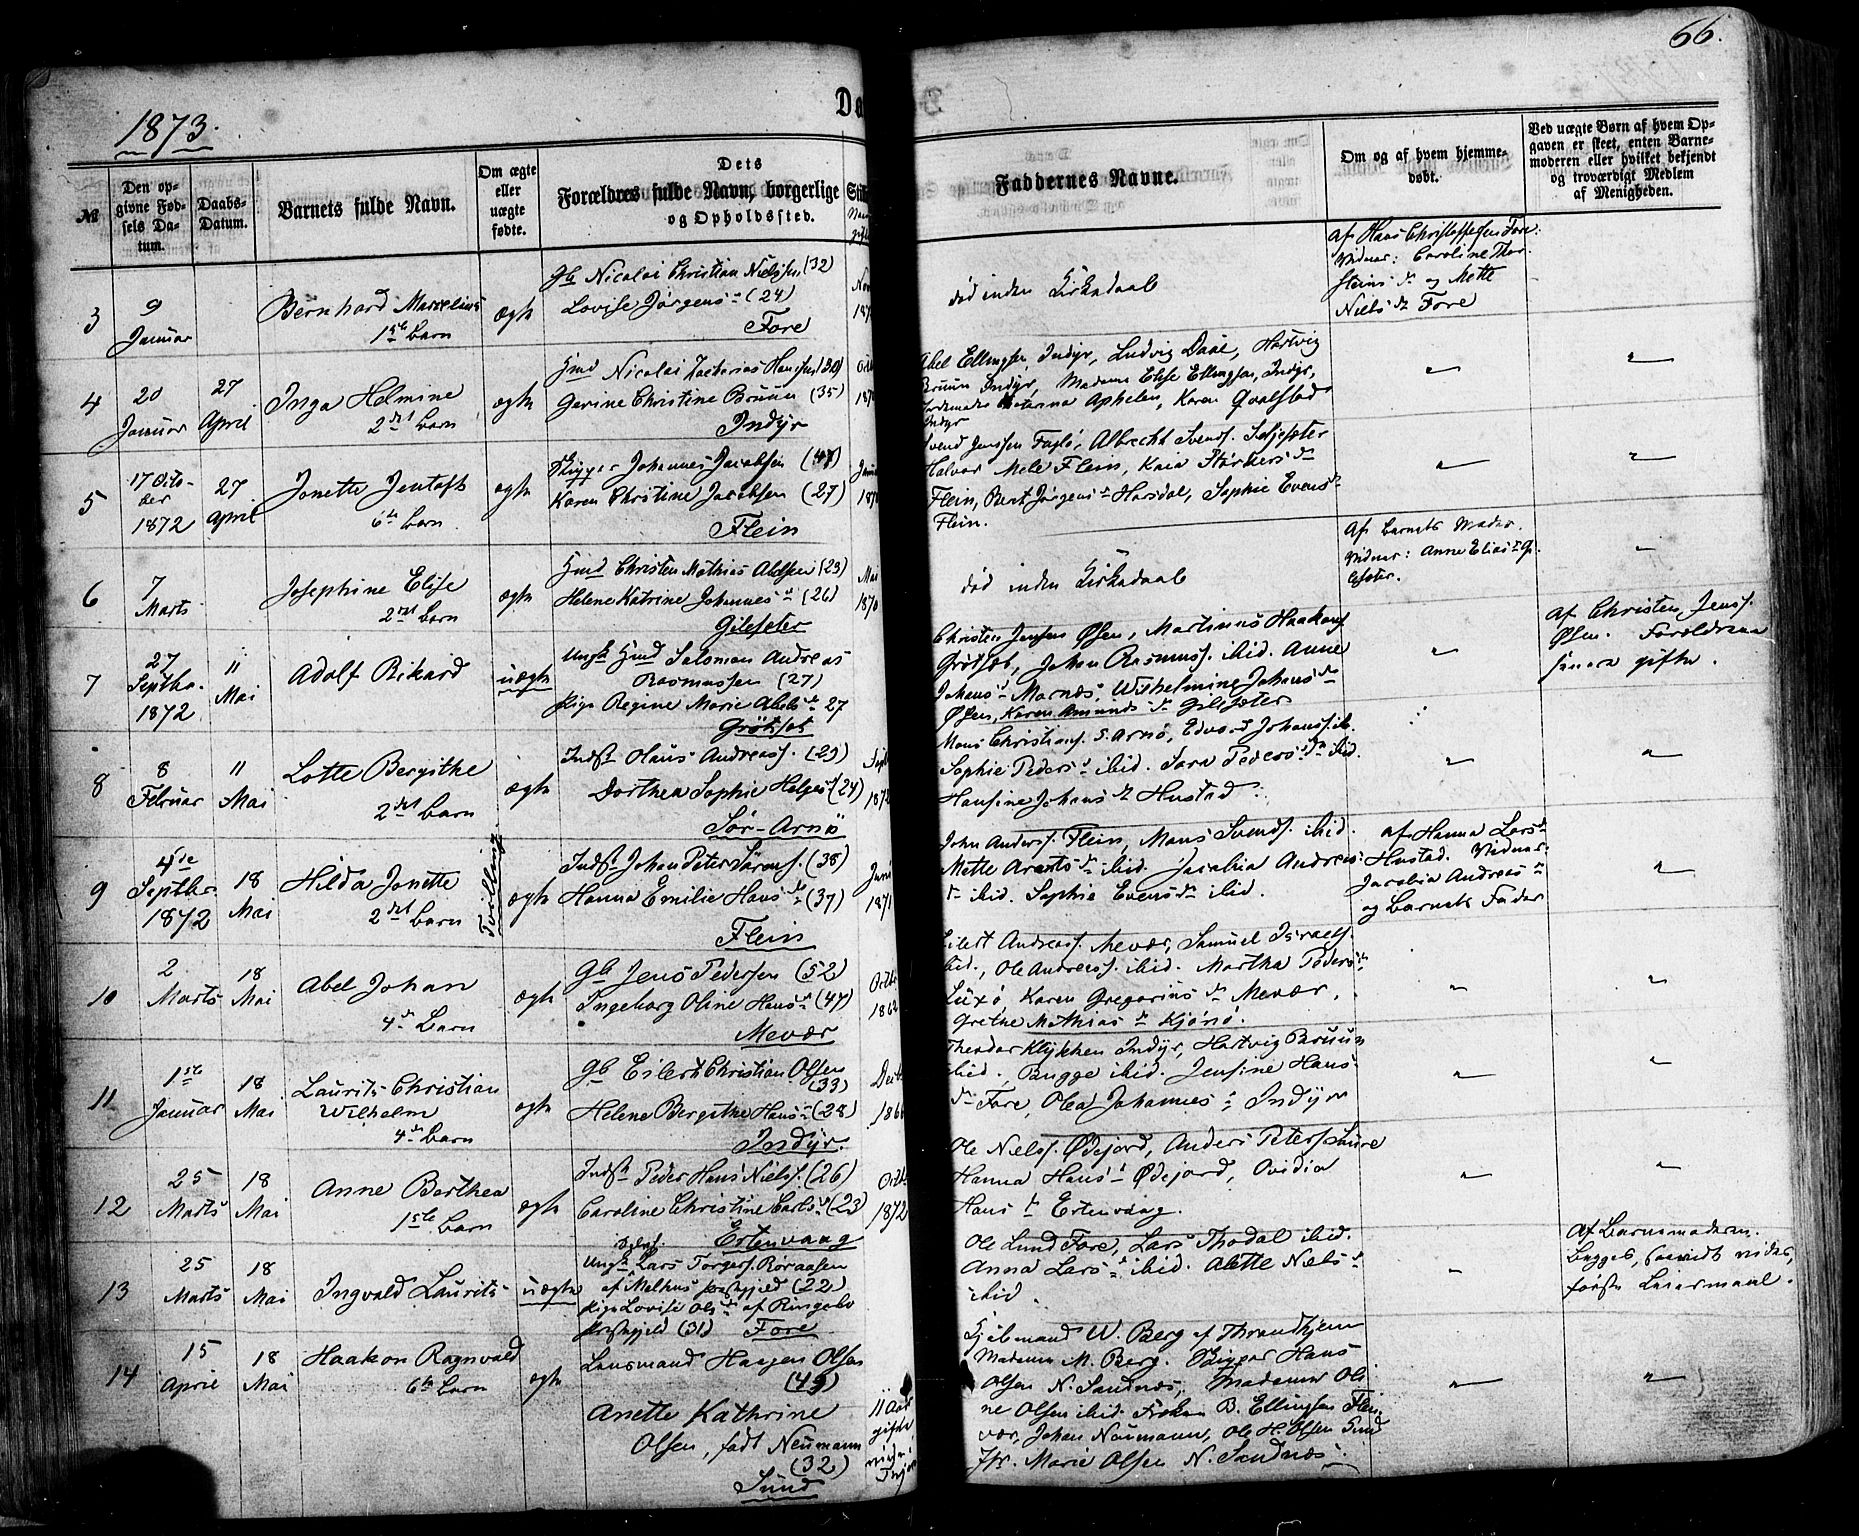 66.
1873.
Da
№
Den op-
givne Fød-
sels Da-
tum.
Daabs-
Datum.
Barnets fulde Navn.
Om ægte
eller
uægte
fødte.
Dets
Forældres fulde Navn, borgerlige
og Opholdssted.
Faddernes Navne.
Om og af hvem hjemme-
døbt.
Ved uægte Børn af hvem Op-
gaven er skeet, enten Barne-
moderen eller hvilket bekjendt
og troværdigt Medlem
af Menigheden.
3
9
Januar
Bernhard Marselius
1ste barn
ægte
Gb Nicolai Christian Nielsen (32)
Lovise Jørgens (24)
Fore
død inden Kirkedaab
af Hans Christoffersen Fore.
Vidner: Caroline Thor-
steinsd og Mette
Nielsdr Fore
4
20
Januar
27
April
Inga Helmine
2det barn
ægte
Gmd Nicolai Zacharias Hansen (30)
Gerine Christine Bruun (35)
Indyr
Abel Ellingsen, Indyr, Ludvig Daae, Hartvig
Bruun Indyr, Madame Elise Ellingsen, Indyr,
Aphelen, Karen Qvalstad
Indyr
5
17 Octo-
ber
1872
27
April
Jonette Jentoft
6te barn
ægte
Johannes Jacobsen
Karen Christine Jacobsen (27)
Flein
Svend Jenssen Fuglø, Albrecht Svends. Selsæter
Halvor Mele Flein, Kaia Størkersdr
Flein, Berit Jørgens Horsdal, Sophie Evensdr
Flein.
6
7
Marts
Josephine Elise
2det barn
ægte
Gmd Christen Mathias Abelsen (23)
Helene Katrine Johannesd (26)
Gilesæter
Mai
1870
død inden Kirkedaab
Af barnets Moder.
Vidner: Anne Eliasdr Gi-
lesæter.
7
27
Septbr.
1872
11
Mai
Adolf Rikard
uægte
Ungk Gmd Salomon Andreas
Rasmussen (27)
Pige Regine Marie Abelsd 27
Grøtset
Christen Jensen Øsen, Martinus Haakons
Grøtset, Johan Rasmuss. ibid. Anne
Johansd Marnæs, Wilhelmine Johansdr
Øsen, Karen Amundsdr Gilesæter
af Christen Jenss.
Øsen. Forældrene
senere gifte.
8
8
Februar
11
Mai
Lotte Bergithe
2det barn
ægte
Indst Hans Andreass. (29)
Dorthea Sophie Helgesd (24)
Sør-Arnø
1872
Mons Christians. S. Arnø, Edvard Johanss. ib.
Sophie Pedersd ibid. Sara Pedersdr ibid.
Hansine Johansdr Hustad
9
4de
Septbr.
1872
18
Mai
Hilda Jonette
2det barn
Tvilling
ægte
Indst Johan Peter Sørens. (38)
Hanna Emilie Hansdr (37)
Flein
Juni
1871
John Anderss. Flein, Mons Svends. ibid.
Mette Arentsdr ibid. Jacobia Andreas-
dr ibid. Sophie Evensdr ibid.
af Hanna Larsdr
Hustad. Vidner:
Jacobia Andreasdr
og Barnets Fader
10
2
Marts
18
Mai
Abel Johan
4de Barn
ægte
Gb Jens Pedersen (52)
Ingeborg Oline Hansd (47)
Mevær
Octbr
1862
Eilert Andreass. Mevær, Samuel Israels.
ibid., Ole Andreass. ibid. Martha Pedersdr
Luxø, Karen Gregoriusdr Mevær,
Grethe Mathiasdr Kjønø.
11
1ste
Januar
18
Mai
Laurits Christian
Wilhelm
4de Barn
ægte
Gb Eilert Christian Olsen
(33)
Helene Bergithe Hans (28)
Indyr.
Theodor Klykken Indyr, Hartvig Bruun
ibid., Bugge ibid. Jensine Hans-
dr Fore, Olea Johannesd Indyr
12
25
Marts
18
Mai
Anne Berthea
1ste barn
ægte
Indst Peder Hans Niels. (26)
Caroline Christine Carlsd (23)
Ertenvaag
Octbr
1872
Ole Niels. Ødejord, Anders Peters. Saure
Hanna Hansd Ødejord, Ovidia
Hansd Ertenvaag.
13
25
Marts
18
Mai
Ingvald Laurits
uægte
Ungk Lars Torgers. Røraasen
af Melhus præstegjeld (22)
Pige Lovise Olsdr af Ringebo
præstegjeld (31) Fore
Ole Lund Fore, Lars Thodal ibid.
Anna Larsd ibid. Alette Nielsd
ibid.
Af Barnemoderen.
Begges, saavidt vides,
første Leiermaal.
14
15
April
18
Mai
Haakon Ragnvald
6te barn
ægte
Lensmand Haagen Olsen
(49)
Anette Kathrine
Olsen, født Neumann
(32)
Sund
11 Aar
gifte
Kjøbmand W. Berg af Throndhjem
Madame M. Berg. Hans
Olsen N. Sandnæs, Madame Oli-
ne Olsen ibid. Frøken B. Ellingsen Flein-
vær, Johan Neumann, Ole H. Olsen Sund
Marie Olsen N. Sandnæs.